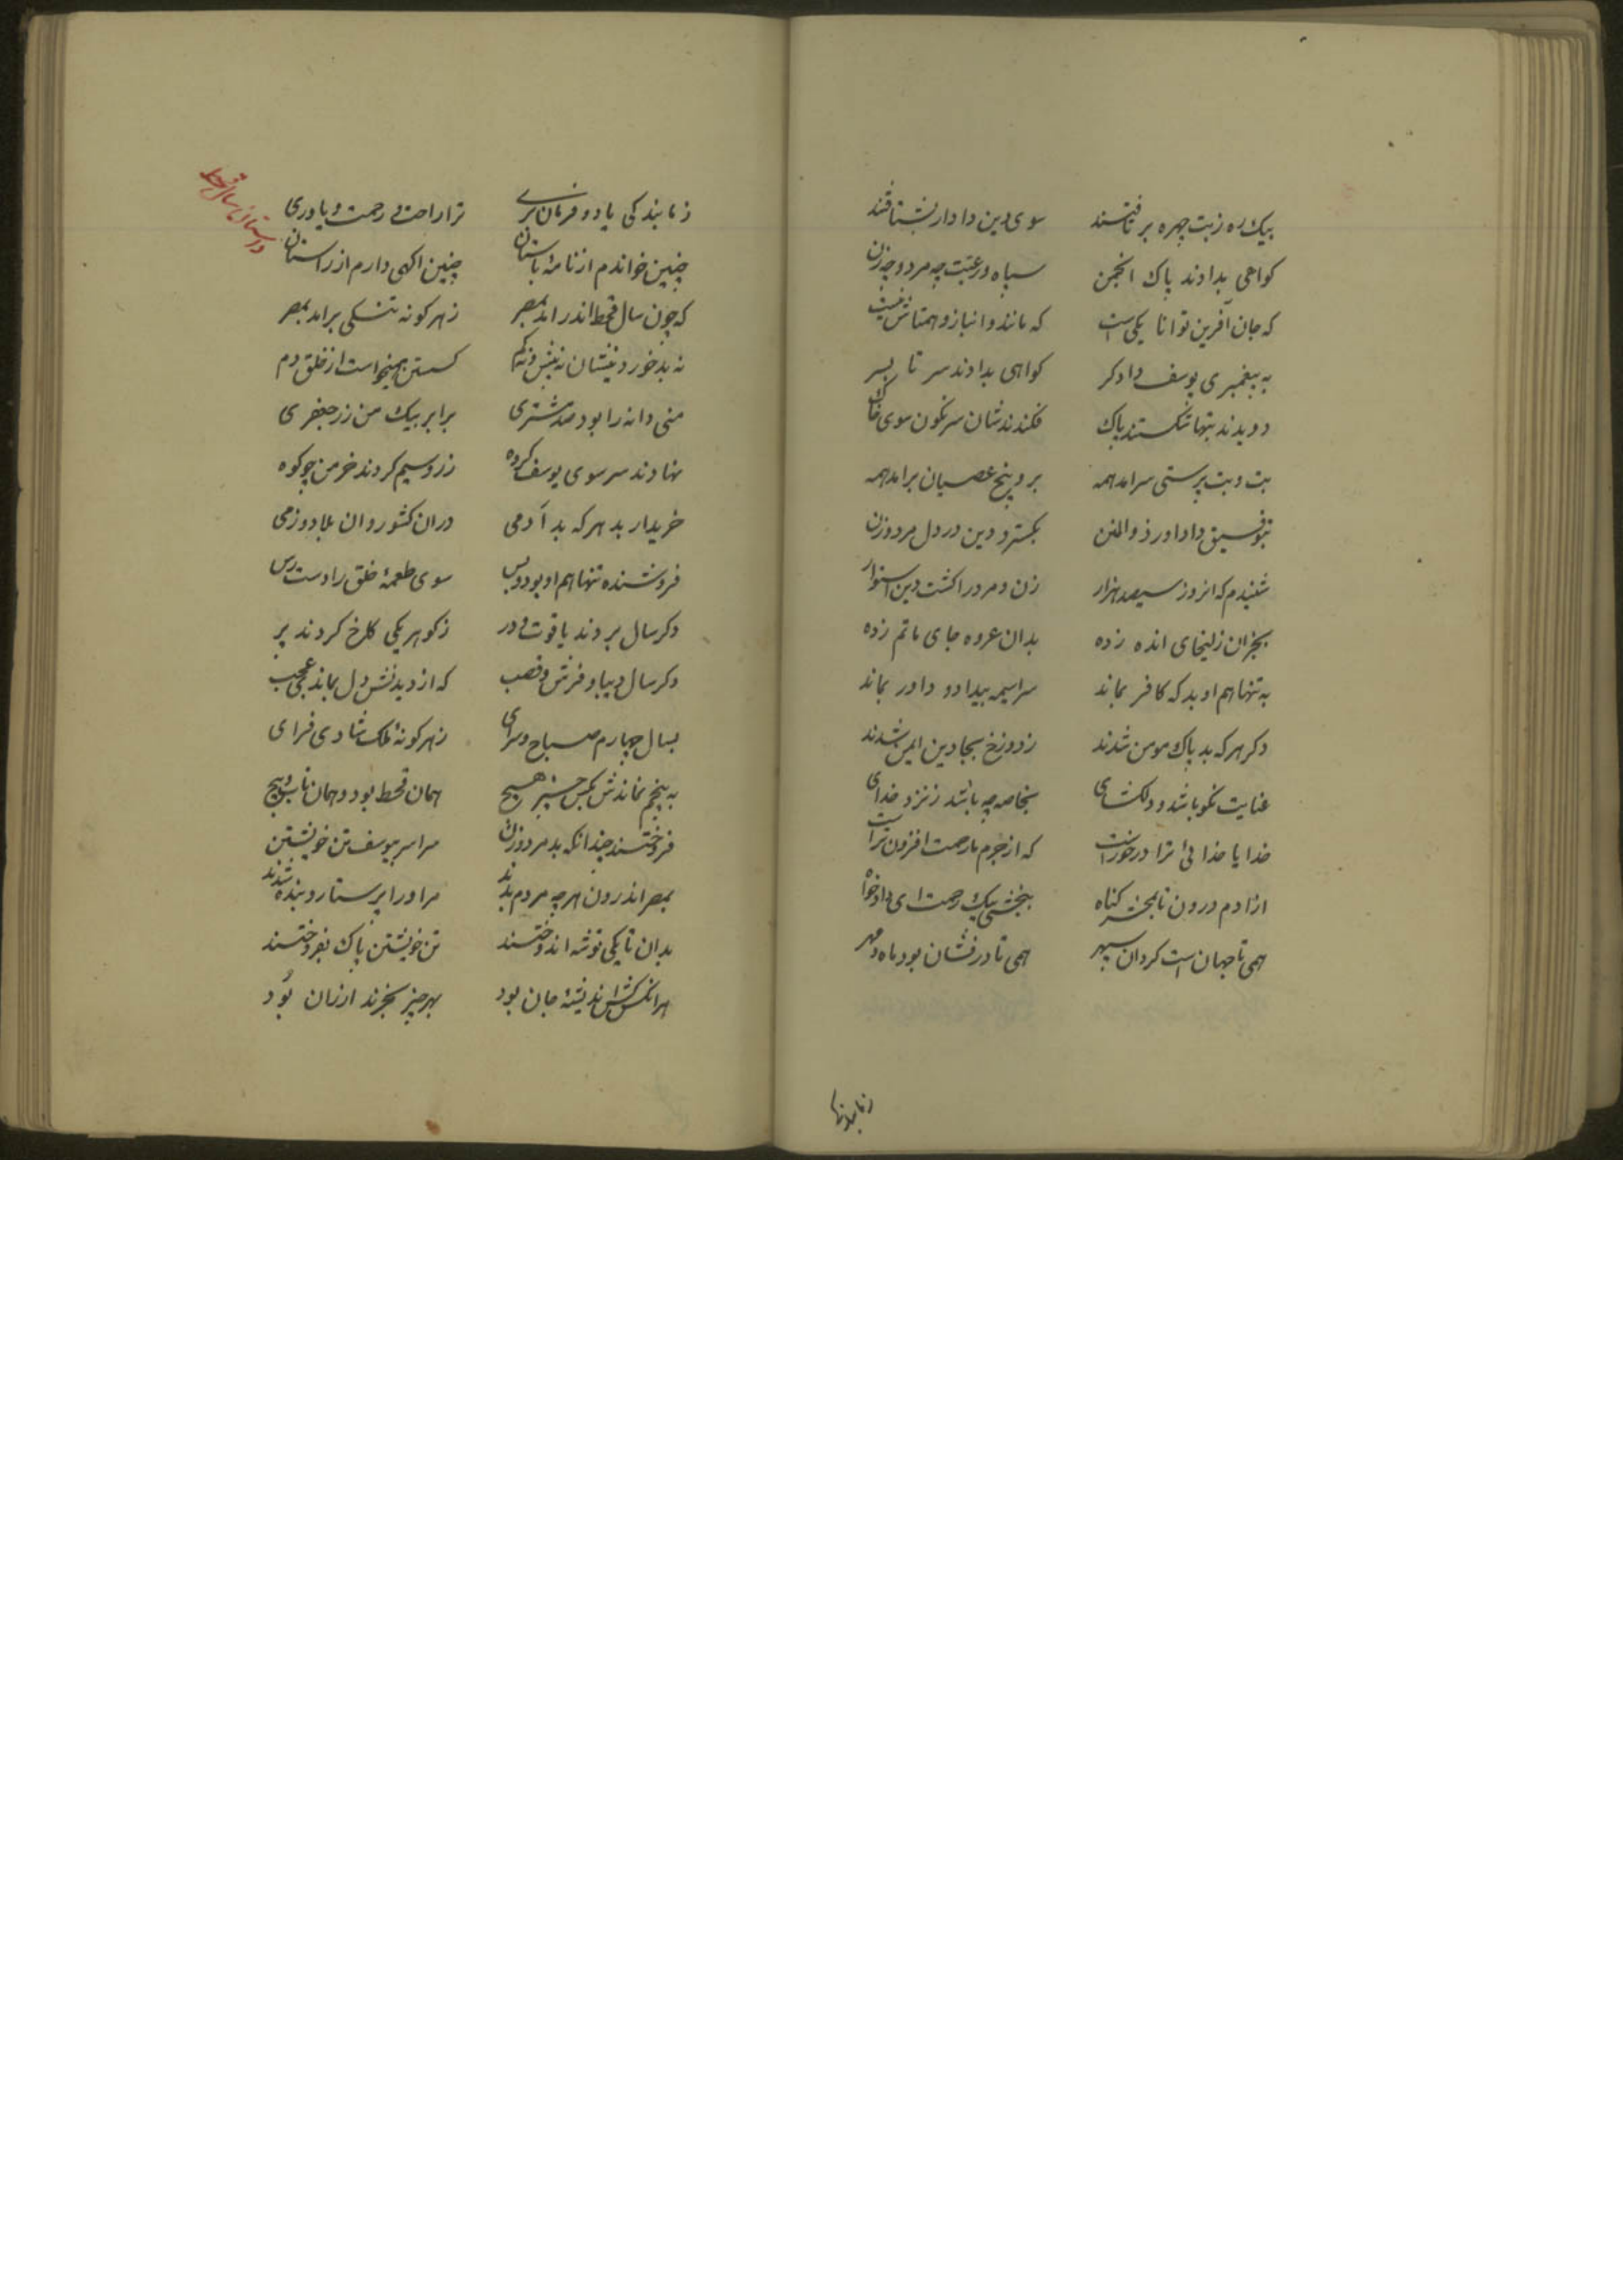 بیک ره ز بت چهره برتافتند سوی دین دادار بشتافتند
کواهی بدادند پاک انجمن سپاه و رعیت چه مرد و چه زن
که جان آفرین توانا یکی است که مانند و انباز و همتاش نیست
به پیغمبری یوسف دادکر کواهی بدادند سر تا بسر
دویدند بتها شکستند پاک فکندندشان سرنکون سوی خاک
بت و بت پرستی سرامد همه بر و بیخ عصیان برامد همه
بتوفیق دادار ذو المنن بکسترد دین در دل مرد و زن
شنیدم که انروز سیصد هزار زن و مرد را کشت دین استوار
بجز ان زلیخای انده زده بدان عروه جای ماتم زده
به تنها هم او بد که کافر بماند سراسیمه بیدادو داور بماند
دکر هر که بد پاک مومن شدند ز دوزخ بجا دین ایمن شدند
عنایت نکو باشد و دلکشای بخاصه چه باشد ز نزد خدای
خدایا خدائی ترا درخورست که از جرم ما رحمت افزون تراست
از ادم درون تا بمحشر کناه ببخشی بیک رحمت ای دادخواه
همی تا جهان است کردان سپهر همی تا درفشان بود ماه و مهر
ز ما بندکی
ز ما بندکی یاد و فرمان بری ترا راحت و رحمت و یاوری
داستان سال قحط
چنین خواندم از نامهٔ باستان چنین اکهی دارم از راستان
که چون سال قحط اندر امد بمصر ز هر کونه تنکی برامد بمصر
نه بد خوردنیشان نه بیش و نه کم کسستن همیخواست از خلق دم
منی دانه را بود صد مشتری برابر بیک من زر جعفری
نهادند سر سوی یوسف کروه زر و سیم کردند خرمن چو کوه
خریدار بد هر که بد آدمی دران کشور و ان بلاد و زمی
فروشنده تنها هم او بود و بس سوی طعمهٔ خلق را دست رس
دکر سال بردند یاقوت و در ز کوهر یکی کلخ کردند پر
دکر سال دیبا و فرش و قصب که از دیدنش دل بماند عجب
بسال چهارم صباح و سرای ز هر کونهٔ ملک شادی فزای
به پنجم نماندش بکس چیز هیچ همان قحط بود و همان تاب و پیچ
فروختند چندانکه بد مرد و زن مراسر بیوسف تن خویشتن
بمصر اندرون هر چه مردم بدند مر او را پرستار و بنده شدند
بدان تا یکی توشه اندوختند تن خویشتن پاک بفروختند
هر انکس کش اندیشهٔ جان بود بهر چیز بخرند ارزان بود